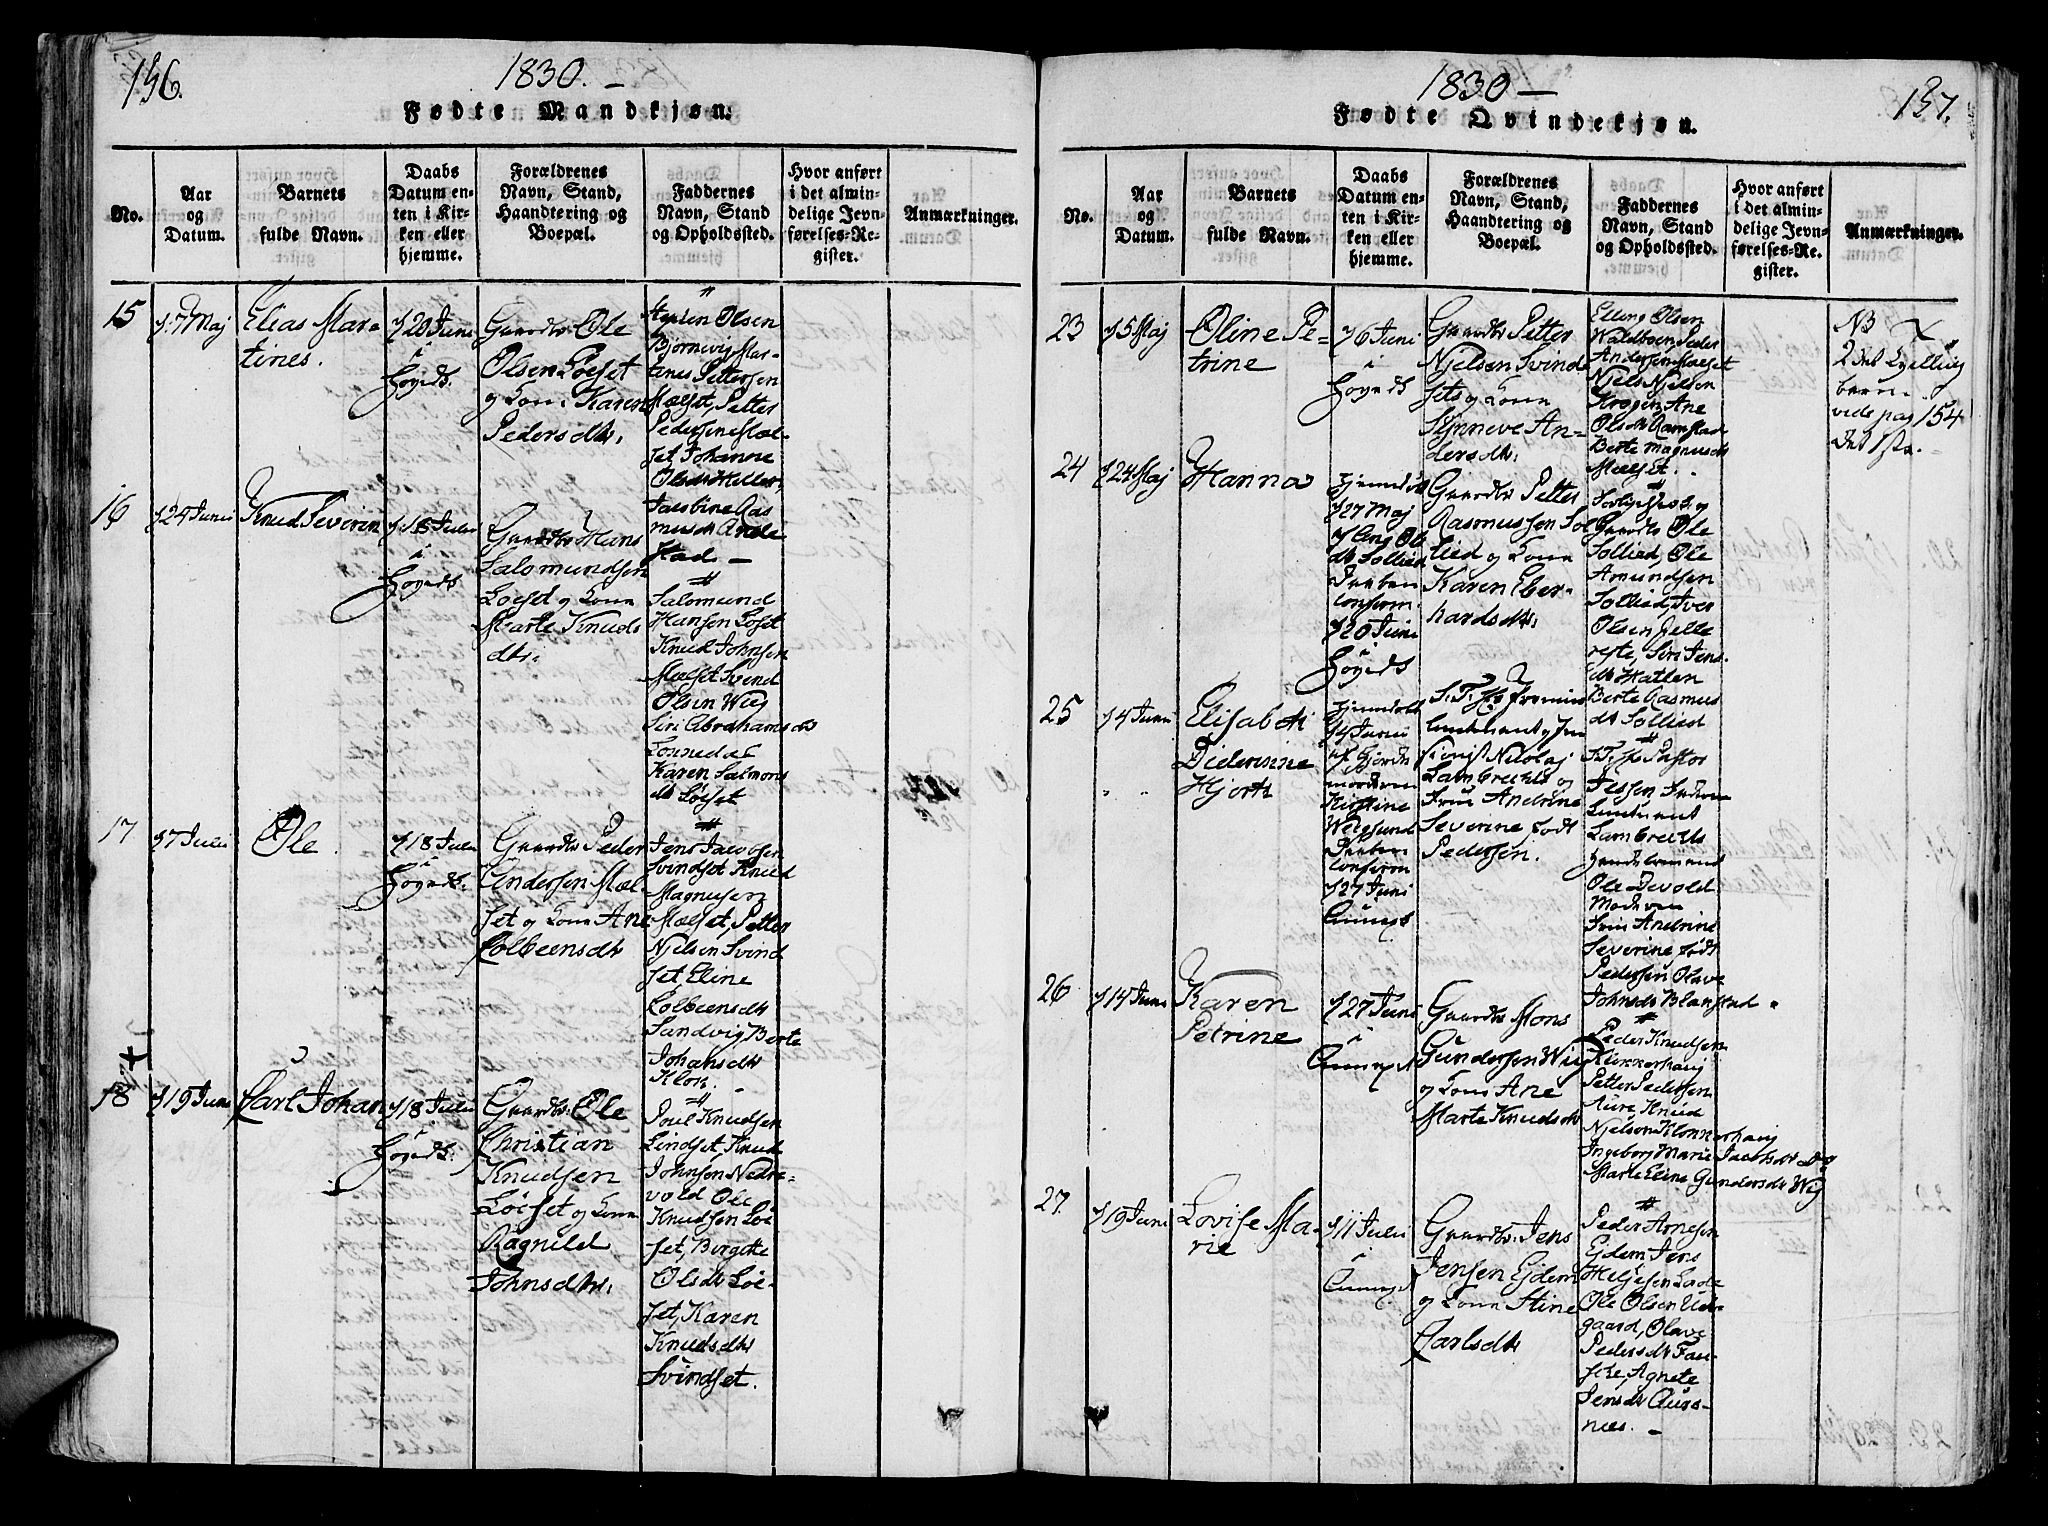 156.
1830. –
Fødte Mandkjøn.
No.
Aar
og
Datum.
Barnets
fulde Navn.
Daabs
Datum en-
ten i Kir-
ken eller
hjemme.
Forældrenes
Navn, Stand,
Haandtering og
Boepæl.
Faddernes
Navn, Stand
og Opholdssted.
Hvor anført
i det almin-
delige Jevn-
førelses-Re-
gister.
Anmærkninger.
15
17 Maj
Elias Mar-
tines.
20 Juni
i
Gaardbr. Ole
Olsen Løeset
og Kone Karen
Pedersdtr.
Olsen
Bjørnevig Mar-
tines Pettersen
Mælset, Petter
Pedersen Mæl-
set, Johanne
Jacobine Ras
musdr
stad –
16
24 Junii
Knud Severin
18 Julii
i
Gaardbr Hans
Salomundsen
Løeset og Kone
Marte Knuds
dtr.
Salomund
Hansen Løset
Knud Johnsen
Mælset Svend
Olsen Wiig
Siri Abrahamsdtr
Karen Salmons
dtr Løeset
17
7 Julii
Ole
18 Julii
i
Gaardbr Peder
Andersen Mæl-
set og Kone Ane
Colbeensdtr
Jens Jacobsen
Svindset Knud
Magnusen
Mælset, Petter
Njelsen Svind
set, Eline
Colbeensdtr
Sandvig Berte
Johansdtr
Klok.
18
19 Juni
Carl Johan
18 Julii
i
Gaardbr. Ole
Christian
Knudsen
Løeset og Kone
Ragnild
Johnsdtr.
Poul Knudsen
Lindset, Knud
Johnsen Nedre-
vold Ole
Knudsen Løe
set, Bergitte
Olsdtr Løe-
set, Karen
Knudsdtr
Svindset.
1830 –
157.
Fødte Qvindekjøn.
No.
Aar
og
Datum.
Barnets
fulde Navn.
Daabs
Datum en-
ten i Kir-
ken eller
hjemme.
Forældrenes
Navn, Stand,
Haandtering og
Boepæl.
Faddernes
Navn, Stand
og Opholdssted.
Hvor anført
i det almin-
delige Jevn-
førelses-Re-
gister.
Anmærkninger.
23
5 Maj
Oline Pe-
trine
6 Juni
i
Gaardbr Petter
Njelsen Svind
set og Kone
Synneve An-
dersdtr.
Elling Olsen
Peder
Andersen Mælset
Njels Njelsen
Krogen, Ane
Olsdtr Ramstad
Berte Magnusdtr
Mælset.
NB X
2det Tvilling
barn
vide pag 154
det 1ste.
24
24 Maj
Hanna
27 Maj
Solliid
confirm.
20 Juni
i
Gaardbr Petter
Rasmussen Sol
lied og Kone
Karen Eber-
hardsdtr.
Gaardbr Ole
Sollied, Ole
Amundsen
Sollied, Iver
Olsen Jelle
reste, Siri Jens
dtr Hatlen
Berte Rasmus
dtr Sollied
25
4 Juni
Elisabeth
Diderinne
Hjorth
4 Junii
moderen
Kirstine
Weigsund
confirm
27 Juni
Nikolaj
Lambrechts og
Frue Andrine
Severine født
Pedersen.
S. T. Hr Pastor
Jessen
Lambrechts
Ole Devold
Moderen
Frue Andrine
Severine født
Pedersen Olave
Johnsdtr Blanstad
26
14 Juni
Karen
Petrine
27 Juni
i
Gaardbr Mons
Gundersen Wiig
og Kone Ane
Marte Knudsdtr
Peder Knudsen
Petter Pedersen
Aure Knud
Njelsen Klokkerhaug
Ingeborg Marie Jacobsdtr
Marte Eline Gundersdtr Wiig
27.
19 Juni
Lovise Ma-
rie
11 Julii
i
Gaardbr. Jens
Jensen Ejdem
og Kone Stine
Carlsdtr
Peder Arnesen
Ejdem, Jens
Helgesen Lade
Ole Olsen Ud-
gaard, Olave
Pedersdtr Fau-
ske, Agnete
Jensdtr Auss-
næs. –